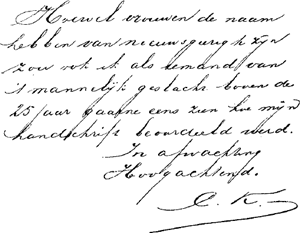 Hoewel vrouwen de naam
hebben van nieuwsgierig te zijn
zou ook ik als iemand van
't mannelijk geslacht boven de
25 jaar gaarne eens zien hoe mijn
handschrift beoordeeld werd.
In afwachting
Hoogachtend.
C. K.